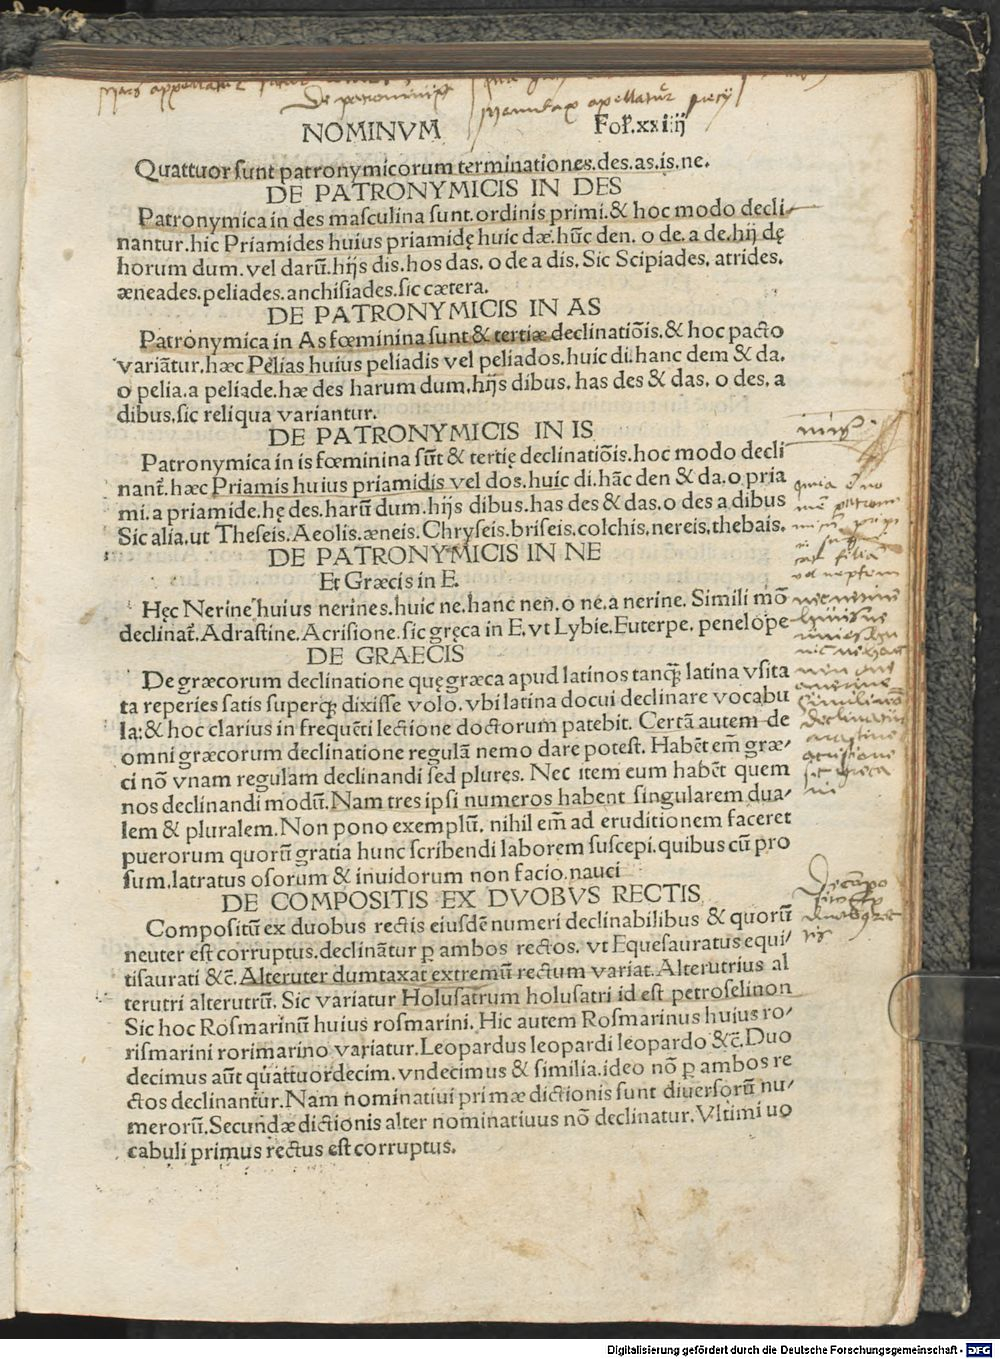 De patronimicis
NOMINVM Fol. xxiiij
Quattuor sunt patronymicorum terminationes.des.as.is.ne.
DE PATRONYMICIS IN DES
Patronymica in des masculina sunt.ordinis primi.& hoc modo decli
nantur.hic Priamides huius priamidę huic dæ.hūc den. o de. a de.hij dę
horum dum. vel darū.hijs dis.hos das. o de a dis. Sic Scipiades. atrides.
æneades.peliades.anchisiades.sic cætera.
DE PATRONYMICIS IN AS
Patronymica in As fœminina sunt & tertiæ declinatiōis.& hoc pacto
variātur.hæc Pelias huius peliadis vel peliados.huic di.hanc dem & da.
o pelia.a peliade.hæ des harum dum.hijs dibus. has des & das. o des. a
dibus.sic reliqua variantur.
DE PATRONYMICIS IN IS
Patronymica in is fœminina sūt & tertię declinatiōis.hoc modo decli
nant̄.hæc Priamis huius priamidis vel dos.huic di.hāc den & da.o pria
mi.a priamide.hę des.harū dum.hijs dibus.has des & das.o des a dibus
Sic alia.ut Theseis.Aeolis.æneis.Chryseis.briseis.colchis.nereis.thebais.
DE PATRONYMICIS IN NE
Et Græcis in E.
Hęc Nerine huius nerines.huic ne.hanc nen.o ne.a nerine. Simili mō
declinat̄.Adrastine.Acrisione.sic gręca in E.vt Lybie.Euterpe.penelope
DE GRAECIS
De græcorum declinatione quę græca apud latinos tanqꝫ latina vsita
ta reperies satis superqꝫ dixisse volo.vbi latina docui declinare vocabu
la:& hoc clarius in frequēti lectione doctorum patebit. Certā autem de
omni græcorum declinatione regulā nemo dare potest. Habēt em̄ græ/
ci nō vnam regulam declinandi sed plures. Nec item eum habēt quem
nos declinandi modū.Nam tres ipsi numeros habent singularem dua/
lem & pluralem.Non pono exemplū. nihil em̄ ad eruditionem faceret
puerorum quorū gratia hunc scribendi laborem suscepi.quibus cū pro
sum.latratus osorum & inuidorum non facio nauci
DE COMPOSITIS EX DVOBVS RECTIS
Compositū ex duobus rectis eiusdē numeri declinabilibus & quorū
neuter est corruptus.declināntur ꝑ ambos rectos. vt Equesauratus equi/
tisaurati &c̄.Alteruter dumtaxat extremū rectum variat.Alterutrius al
terutri alterutrū. Sic variatur Holusatrum holusatri id est petroselinon
Sic hoc Rosmarinū huius rosmarini. Hic autem Rosmarinus huius ro/
rismarini rorimarino variatur.Leopardus leopardi leopardo &c̄.Duo
decimus aūt quattuordecim. vndecimus & similia.ideo nō ꝑ ambos re
ctos declinantur.Nam nominatiui primæ dictionis sunt diuersorū nu/
merorū.Secundæ dictionis alter nominatiuus nō declinatur.Vltimi uo
cabuli primus rectus est corruptus.
Digitalisierung gefördert durch die Deutsche Forschungsgemeinschaft - DFG